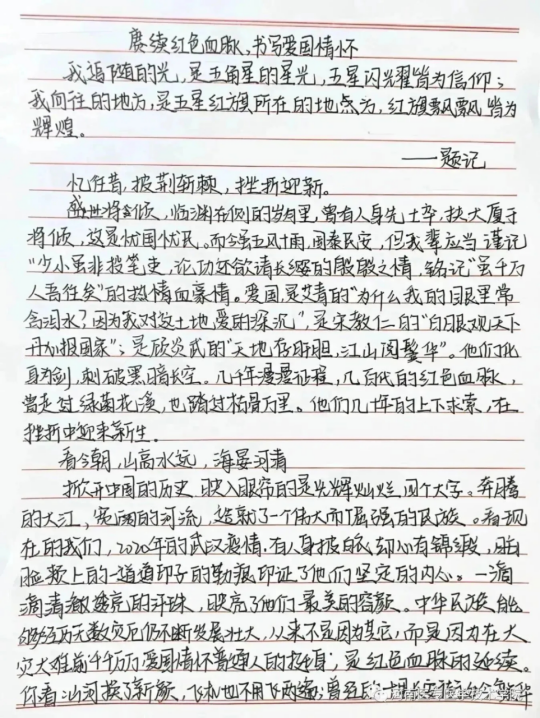 赓续红色血脉，书写爱国情怀
我追随的光，是五角星的星光，五星闪光耀皆为信仰；
我向往的地方，是五星红旗所在的地点方，红旗飘飘皆为
辉煌。
——题记
忆往昔，披荆斩棘，挫折迎新。
盛世将倾，临渊在侧的岁月里，曾有人身先士卒，扶大厦于
将倾，这是忧国忧民。而今虽五风十雨，国泰民安，但我辈应当谨记
“少小虽非投笔吏，论功还欲请长缨的殷殷之情，铭记“虽千万
人吾往矣”的热情血豪情。爱国是艾青的“为什么我的眼里常
含泪水？因为我对这土地爱的深沉”，是宋教仁的“白眼观天下
丹心报国家”；是顾炎武的“天地存肝胆，江山阅鬓华”。他们化
身为剑，刺破黑暗长空。几千年漫漫征程，几百代的红色血脉，
曾走过绿菌花溪，也踏过枯骨万里。他们几十年的上下求索，在
挫折中迎来新生。
看今朝，山高水远，海晏河清
掀开中国的历史，映入眼帘的是光辉灿烂四个大字。奔腾
的大江，宽阔的河流，造就了一个伟大而倔强的民族。看现
在的我们，2020年的武汉疫情，有人身披白衣却心有锦缎，
脸颊上的一道道印子的勒痕印证了他们坚定的内心。一滴
滴清澈透亮的汗珠，映亮了他们最美的容颜。中华民族能
够经历无数灾厄仍不断发展壮大，从来不是因为其它，而是因为在大
灾大难前千千万万爱国情怀普通人的挺身；是红色血脉的延续。
你看山河换了新颜，飞机也不用飞两遍，曾经的